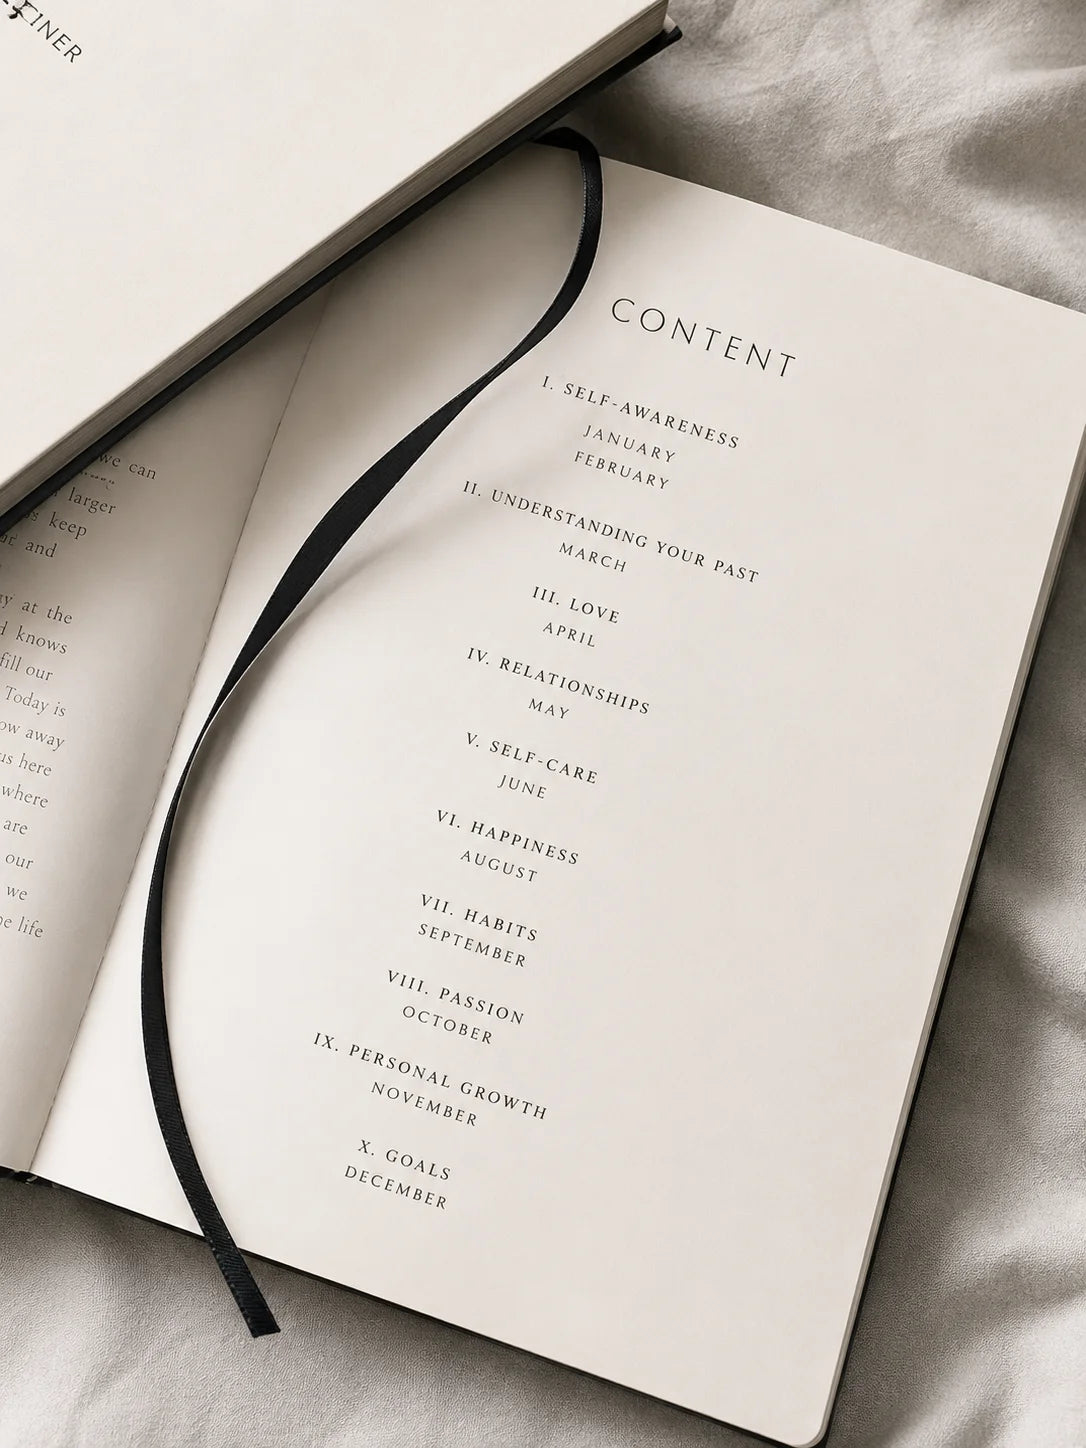 INER
we can
larger
keep
and
at the
knows
fill our
Today is
away
us here
where
are
our
we
life
CONTENT
I. SELF-AWARENESS
JANUARY
FEBRUARY
II. UNDERSTANDING YOUR PAST
MARCH
III. LOVE
APRIL
IV. RELATIONSHIPS
MAY
V. SELF-CARE
JUNE
VI. HAPPINESS
AUGUST
VII. HABITS
SEPTEMBER
VIII. PASSION
OCTOBER
IX. PERSONAL GROWTH
NOVEMBER
X. GOALS
DECEMBER